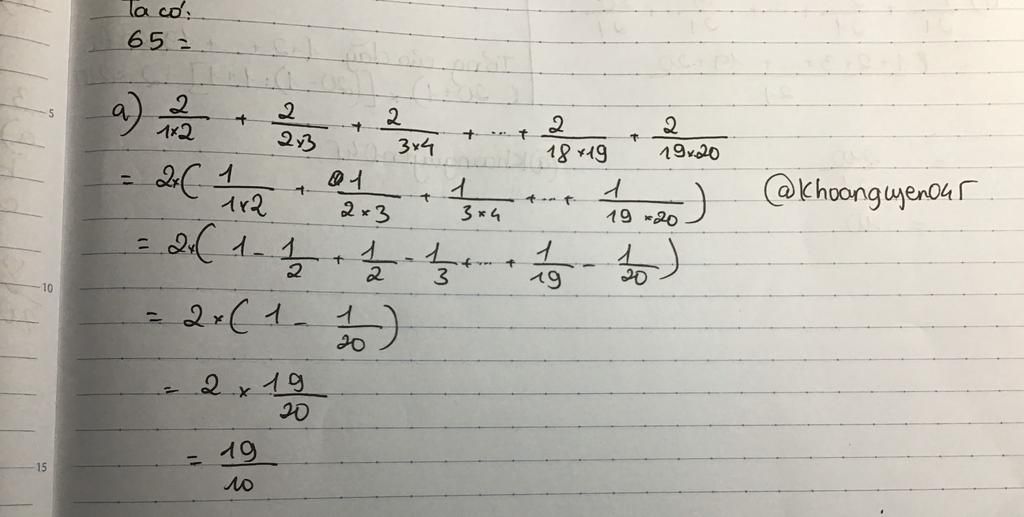 Ta có:
65 =
a) 2/1×2 + 2/2×3 + 2/3×4 + ... + 2/18×19 + 2/19×20
= 2×( 1/1×2 + 1/2×3 + 1/3×4 + ... + 1/19×20 ) @khoanguyen045
= 2×( 1 - 1/2 + 1/2 - 1/3 + ... + 1/19 - 1/20 )
= 2×( 1 - 1/20 )
= 2 × 19/20
= 19/10
5
10
15